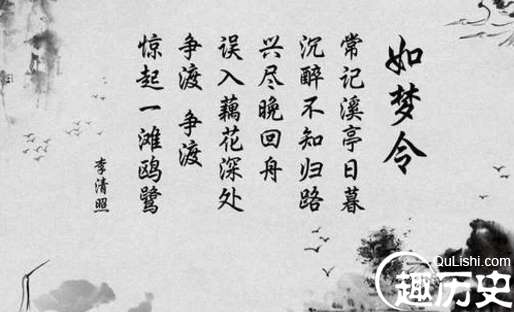 如梦令
常记溪亭日暮
沉醉不知归路
兴尽晚回舟
误入藕花深处
争渡 争渡
惊起一滩鸥鹭
李清照
QuLishi.com
趣历史